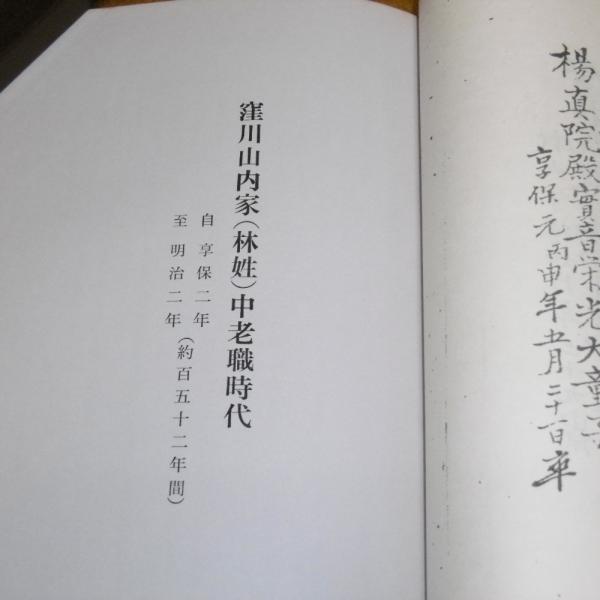 楊真院殿實音栄光大童子
享保元丙申年五月二十一日卒
窪川山内家（林姓）中老職時代
自享保二年
至明治二年（約百五十二年間）